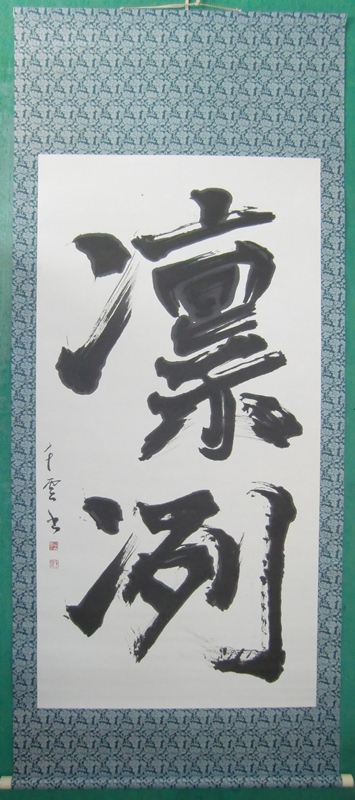 凛冽
千雲書